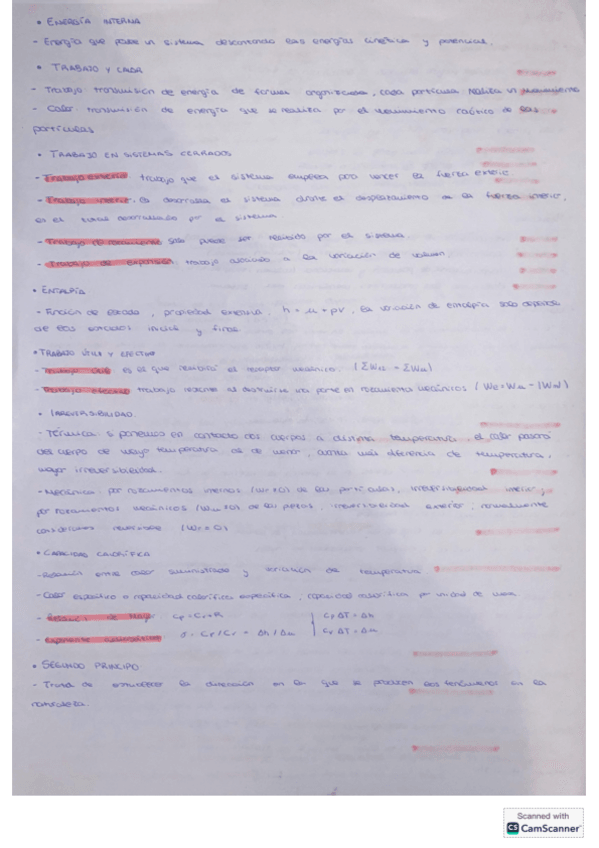 • ENERGÍA INTERNA
- Energía que posee un sistema descontando las energías cinética y potencial.
• TRABAJO Y CALOR
- Trabajo transmisión de energía de forma organizada, cada partícula realiza un
- Calor transmisión de energía que se realiza por el movimiento caótico de las
partículas
• TRABAJO EN SISTEMAS CERRADOS
- Trabajo exterior trabajo que el sistema emplea para vencer la fuerza exterior.
- Trabajo interior, es desarrollado el sistema durante el desplazamiento de la fuerza interior,
es el total desarrollado por el sistema
- Trabajo de rozamiento solo puede ser recibido por el sistema.
- Trabajo de expansión trabajo asociado a la variación de volumen.
• ENTALPÍA
- Función de estado, propiedad extensiva, h = u + pv, la variación de entalpía solo depende
de los estados inicial y final
• TRABAJO ÚTIL Y EFECTIVO
- Trabajo útil es el que recibirá el receptor mecánico.
- Trabajo efectivo trabajo restante al destruirse una parte en rozamientos mecánicos
• IRREVERSIBILIDAD.
- Térmica: si ponemos en contacto dos cuerpos a distinta temperatura, el calor pasará
del cuerpo de mayor temperatura, al de menor, cuanta más diferencia de temperatura,
mayor irreversibilidad.
- Mecánica: por rozamientos internos de las partículas, irreversibilidad interior;
por rozamientos mecánicos de las piezas, irreversibilidad exterior; normalmente
consideramos reversible
• CAPACIDAD CALORÍFICA
- Relación entre calor suministrado y variación de temperatura
- Calor específico o capacidad calorífica específica, capacidad calorífica por unidad de masa
- Relación de Mayer
- Exponente
• SEGUNDO PRINCIPIO
- Trata de establecer la dirección en la que se producen los fenómenos en la
naturaleza.
Scanned with
CS CamScanner